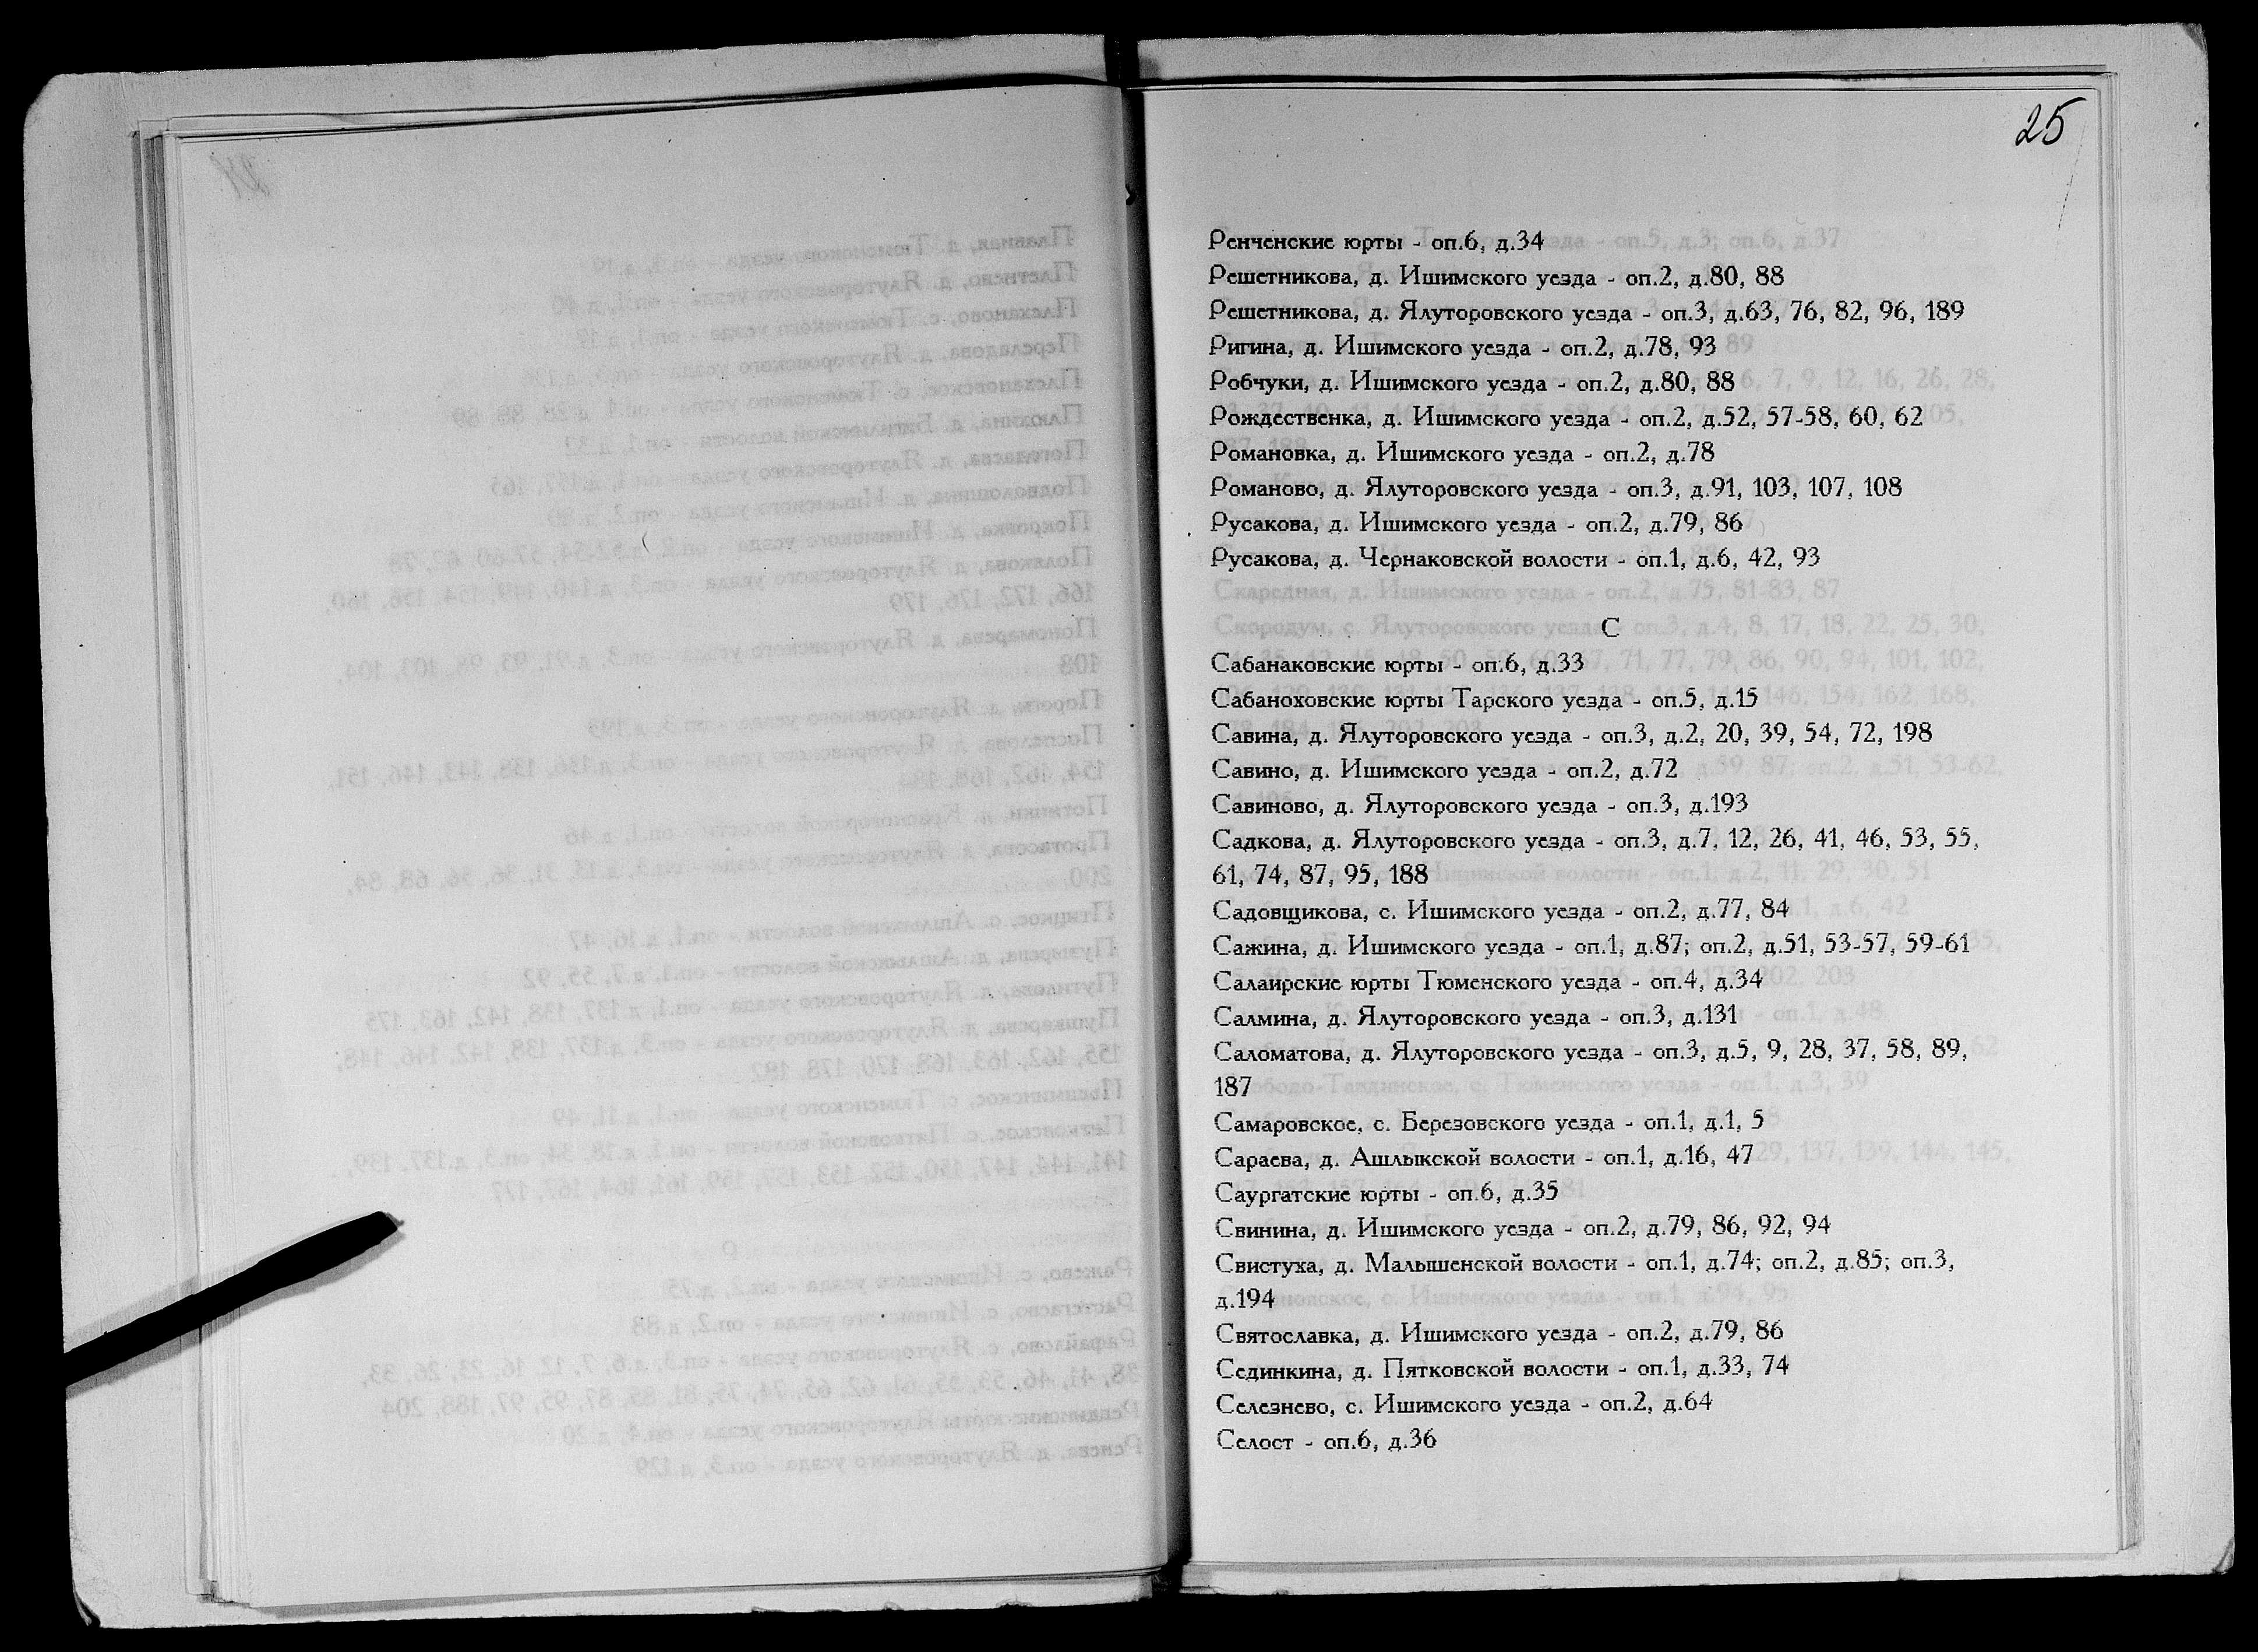 25
Ренченские юрты - оп.6, д.34
Решетникова, д. Ишимского уезда - оп.2, д.80, 88
Решетникова, д. Ялуторовского уезда - оп.3, д.63, 76, 82, 96, 189
Ригина, д. Ишимского уезда - оп.2, д.78, 93
Робчуки, д. Ишимского уезда - оп.2, д.80, 88
Рождественка, д. Ишимского уезда - оп.2, д.52, 57-58, 60, 62
Романовка, д. Ишимского уезда - оп.2, д.78
Романово, д. Ялуторовского уезда - оп.3, д.91, 103, 107, 108
Русакова, д. Ишимского уезда - оп.2, д.79, 86
Русакова, д. Чернаковской волости - оп.1, д.6, 42, 93
С
Сабанаковские юрты - оп.6, д.33
Сабаноховские юрты Тарского уезда - оп.5, д.15
Савина, д. Ялуторовского уезда - оп.3, д.2, 20, 39, 54, 72, 198
Савино, д. Ишимского уезда - оп.2, д.72
Савиново, д. Ялуторовского уезда - оп.3, д.193
Садкова, д. Ялуторовского уезда - оп.3, д.7, 12, 26, 41, 46, 53, 55,
61, 74, 87, 95, 188
Садовщикова, с. Ишимского уезда - оп.2, д.77, 84
Сажина, д. Ишимского уезда - оп.1, д.87; оп.2, д.51, 53-57, 59-61
Салаирские юрты Тюменского уезда - оп.4, д.34
Салмина, д. Ялуторовского уезда - оп.3, д.131
Саломатова, д. Ялуторовского уезда - оп.3, д.5, 9, 28, 37, 58, 89,
187
Самаровское, с. Березовского уезда - оп.1, д.1, 5
Сараева, д. Ашлыкской волости - оп.1, д.16, 47
Саургатские юрты - оп.6, д.35
Свинина, д. Ишимского уезда - оп.2, д.79, 86, 92, 94
Свистуха, д. Малышенской волости - оп.1, д.74; оп.2, д.85; оп.3,
д.194
Святославка, д. Ишимского уезда - оп.2, д.79, 86
Сединкина, д. Пятковской волости - оп.1, д.33, 74
Селезнево, с. Ишимского уезда - оп.2, д.64
Селост - оп.6, д.36